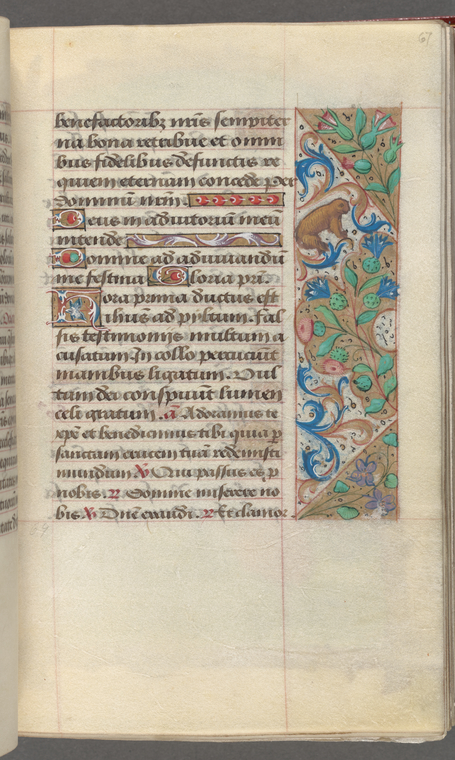 67
benefactoribꝫ nr̃is sempiter
na bona retribue et omni
bus fidelibus defunctis re
quiem eternam concede per
dominum nr̃m.
Deus in adiutorium meũ
intende
Domine ad adiuuandũ
me festina Gloria pr̃i.
Hora prima ductus est
ihesus ad pylatum. fal
sis testimoniis multum a
cusatum In collo percuciũt
manibus ligatum. Vul
tum dei conspuunt lumen
celi gratum. añ Adoramus te
xp̃e et benedicimus tibi quia ꝑ
sanctam crucem tuã redemisti
mundum ℣ Qui passus es ꝓ
nobis. ℟ Domine miserere no
bis ℣ Dñe exaudi. ℟ Et clamor